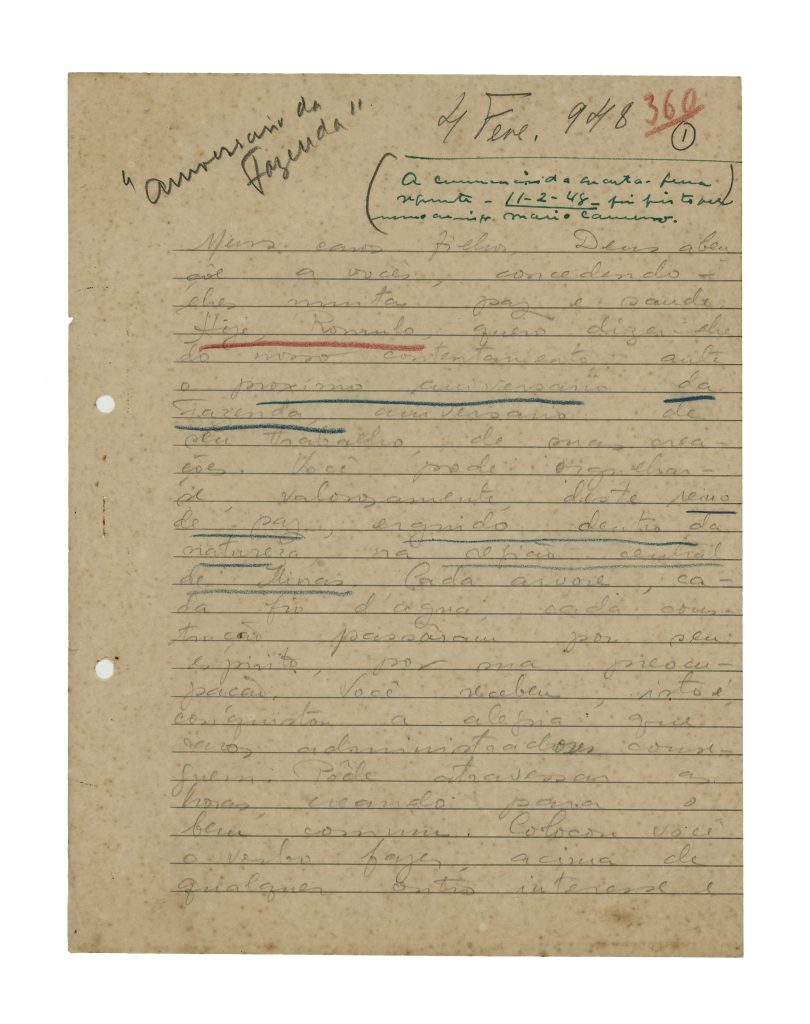 "aniversario da
Fazenda"
4 Feve. 948
360
1
(A comunicação da quarta-feira
seguinte - 11-2-48 - foi
Mario
Meus caros filhos, Deus aben
çôe a vocês, concedendo-
lhes muita paz e saude.
Hoje, Romulo, quero dizer-lhe
do nosso contentamento ante
o proximo aniversario da
Fazenda, aniversario de
seu trabalho, de suas crea-
ções. Você pode orgulhar-
se, valorosamente, deste reino
de paz, erguido dentro da
natureza na região central
de Minas. Cada arvore, ca-
da fio d'agua, cada cons-
trução passaram por seu
espirito, por sua preocu-
pação. Você recebeu, isto é,
conquistou a alegria que
raros administradores conse-
guem. Pôde atravessar as
horas creando para o
bem commum. Colocou você
o verbo fazer, acima de
qualquer outro interesse e